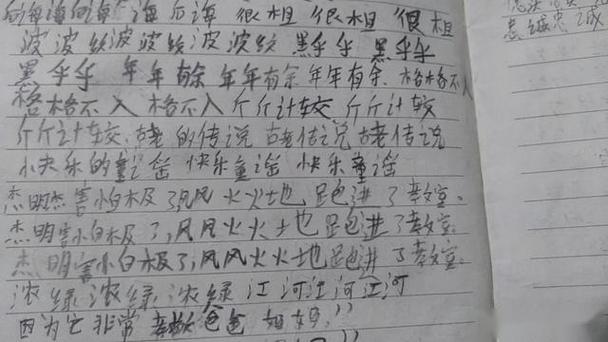 的海 海 后海 很粗 很粗 很粗
波波纹波波纹波波纹 黑乎乎 黑乎乎
黑乎乎 年年有余 年年有余 年年有余 格格不入
格格不入 格格不入 斤斤计较 斤斤计较
斤斤计较 古老的传说 古老传说 古老传说
小快乐的童谣 快乐童谣 快乐童谣
杰明 害怕极了,风风火火地跑进了教室。
杰明害怕极了,风风火火地跑进了教室。
杰明害怕极了,风风火火地跑进了教室。
浓绿 浓绿 浓绿 江河江河江河
因为它非常 爸爸
忠诚忠诚